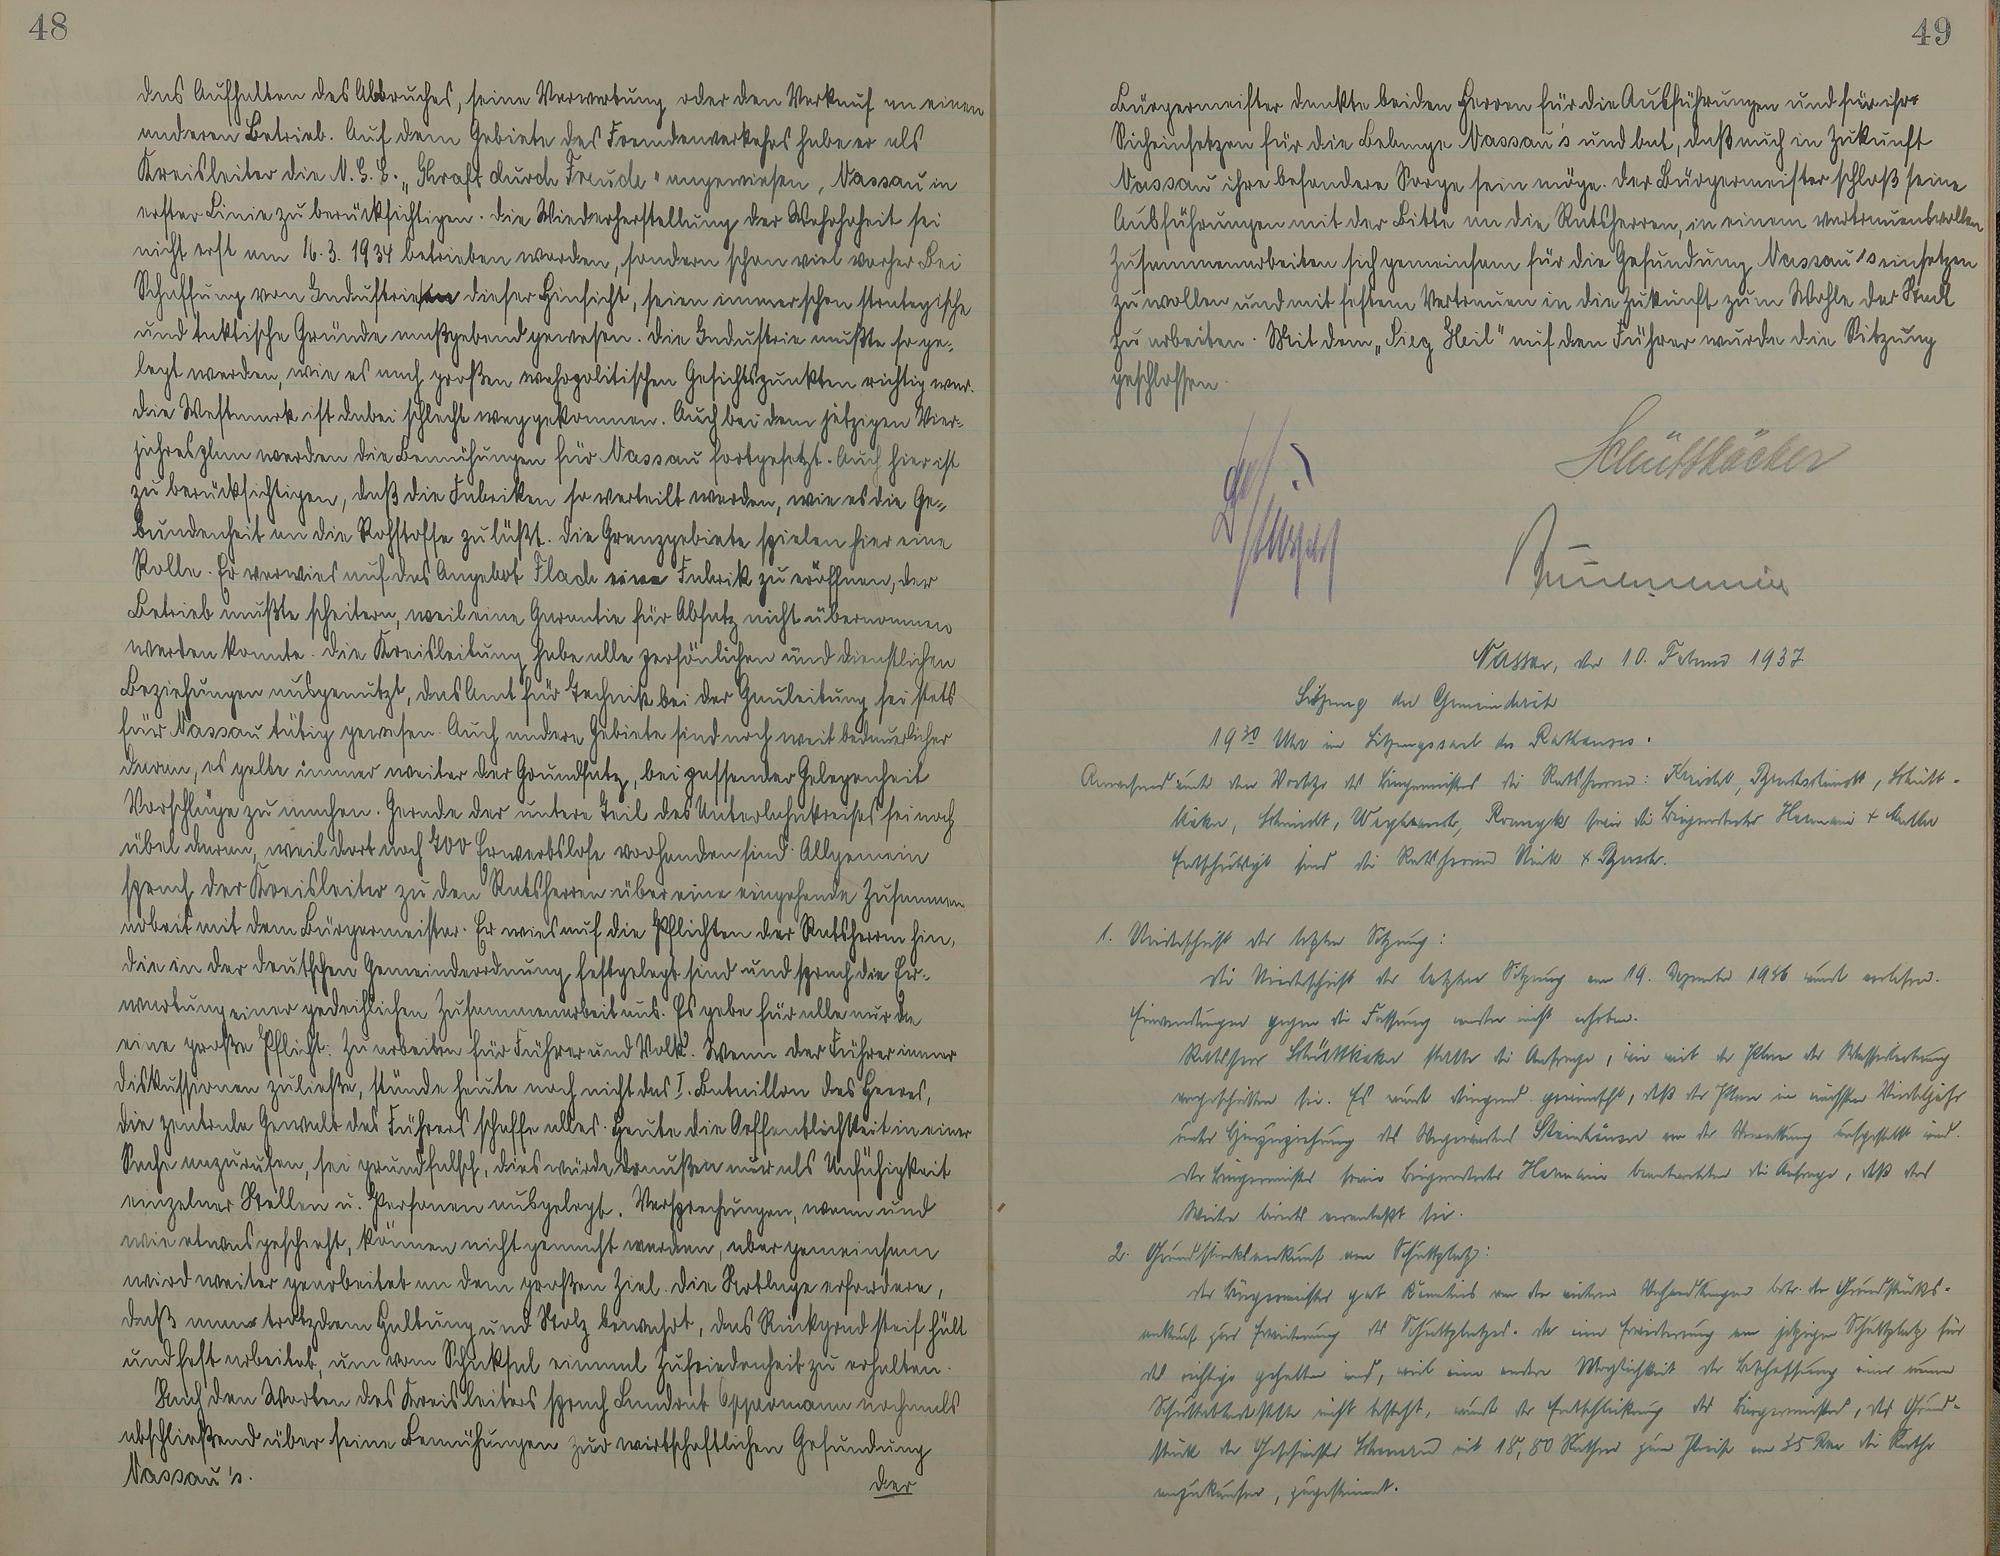 48
das Aufhalten des Abbruches, seine Verwertung oder den Verkauf an einen
anderen Betrieb. Auf dem Gebiete des Fremdenverkehrs habe er als
Kreisleiter die N.S.G. „Kraft durch Freude" angewiesen, Nassau in
erster Linie zu berücksichtigen. Die Wiederherstellung der Wehrhoheit sei
nicht erst am 16.3.1934 betrieben worden, sondern schon viel vorher. Bei
Schaffung von Industrie in dieser Hinsicht, seien immer schon strategische
und taktische Gründe maßgebend gewesen. Die Industrie mußte so ge-
legt werden, wie es nach großen wehrpolitischen Gesichtspunkten richtig war.
Die Westmark ist dabei schlecht weggekommen. Auch bei dem jetzigen Vier-
jahresplan werden die Bemühungen für Nassau fortgesetzt. Auch hier ist
zu berücksichtigen, daß die Fabriken so verteilt werden, wie es die Ge-
bundenheit an die Rohstoffe zuläßt. Die Grenzgebiete spielen hier eine
Rolle. Er verwies auf das Angebot Flach eine Fabrik zu eröffnen, der
Betrieb mußte scheitern, weil eine Garantie für Absatz nicht übernommen
werden konnte. Die Kreisleitung habe alle persönlichen und dienstlichen
Beziehungen ausgenutzt, das Amt für Technik bei der Gauleitung sei stets
für Nassau tätig gewesen. Auch andere Gebiete sind noch weit bedauerlicher
daran, es gelte immer weiter der Grundsatz, bei passender Gelegenheit
Vorschläge zu machen. Gerade der untere Teil des Unterlahnkreises sei noch
übel daran, weil dort noch 700 Erwerbslose vorhanden sind. Allgemein
sprach der Kreisleiter zu den Ratsherren über eine eingehende Zusammen
arbeit mit dem Bürgermeister. Er wies auf die Pflichten der Ratsherren hin,
die in der deutschen Gemeindeordnung festgelegt sind und sprach die Er-
wartung einer gedeihlichen Zusammenarbeit aus. Es gebe für alle nur die
eine große Pflicht: Zu arbeiten für Führer und Volk. Wenn der Führer immer
Diskussionen zuließe, stünde heute noch nicht das I. Bataillon des Heeres,
die zentrale Gewalt des Führers schaffe alles. Heute die Oeffentlichkeit in einer
Sache anzurufen, sei grundfalsch, dies würde draußen nur als Unfähigkeit
einzelner Stellen u. Personen ausgelegt. Versprechungen, wann und
wie etwas geschieht, können nicht gemacht werden, aber gemeinsam
wird weiter gearbeitet an dem großen Ziel. Die Notlage erfordere,
daß man trotzdem Haltung und Stolz bewahrt, das Rückgrad steif hält
und fest arbeitet, um vom Schicksal einmal Zufriedenheit zu erhalten.
Nach den Worten des Kreisleiters sprach Landrat Oppermann nochmals
abschließend über seine Bemühungen zur wirtschaftlichen Gesundung
Nassau's.
Der
49
Bürgermeister dankte beiden Herren für die Ausführungen und für ihr
Sicheinsetzen für die Belange Nassau's und bat, daß auch in Zukunft
Nassau ihre besondere Sorge sein möge. Der Bürgermeister schloß seine
Ausführungen mit der Bitte an die Ratsherren, in einem vertrauensvollen
Zusammenarbeiten sich gemeinsam für die Gesundung Nassau's einsetzen
zu wollen und mit festem Vertrauen in die Zukunft zum Wohle der Stadt
zu arbeiten. Mit dem „Sieg Heil" auf den Führer wurde die Sitzung
geschlossen.
Schüttkäcker
Nassau, den 10. Februar 1937
Sitzung der Gemeinderäte
19³⁰ Uhr im Sitzungssaal des Rathauses.
Anwesend unter dem Vorsitze des Bürgermeisters die Ratsherren:
Schmidt, sowie die Beigeordneten Hermani +
Entschuldigt sind die Ratsherren
1. Niederschrift der letzten Sitzung:
Die Niederschrift der letzten Sitzung am 19. Dezember 1936 wurde verlesen.
Einwendungen gegen die Fassung wurden nicht erhoben.
Ratsherr Schüttkäcker stellte die Anfrage, wie weit der Plan der Wasserleitung
vorgeschritten sei. Es wurde dringend gewünscht, daß der Plan im nächsten Vierteljahr
unter Hinzuziehung des von der Verwaltung aufgestellt wird.
Der Bürgermeister sowie Beigeordneter Hermani beantworteten die Anfrage, daß das
Weitere bereits veranlaßt sei.
2. Grundstücksankauf am Schuttplatz:
Der Bürgermeister gab Kenntnis von den weiteren Verhandlungen betr. den Grundstücks-
ankauf zur Erweiterung des Schuttplatzes. Da eine Erweiterung am jetzigen Schuttplatz für
das richtige gehalten wird, weil eine andere Möglichkeit der Beschaffung einer neuen
Schuttabladestelle nicht besteht, wurde der Entschließung des Bürgermeisters, das Grund-
stück der Geschwister mit 18,80 Ruthen zum Preise von 35 RM die Ruthe
anzukaufen, zugestimmt.